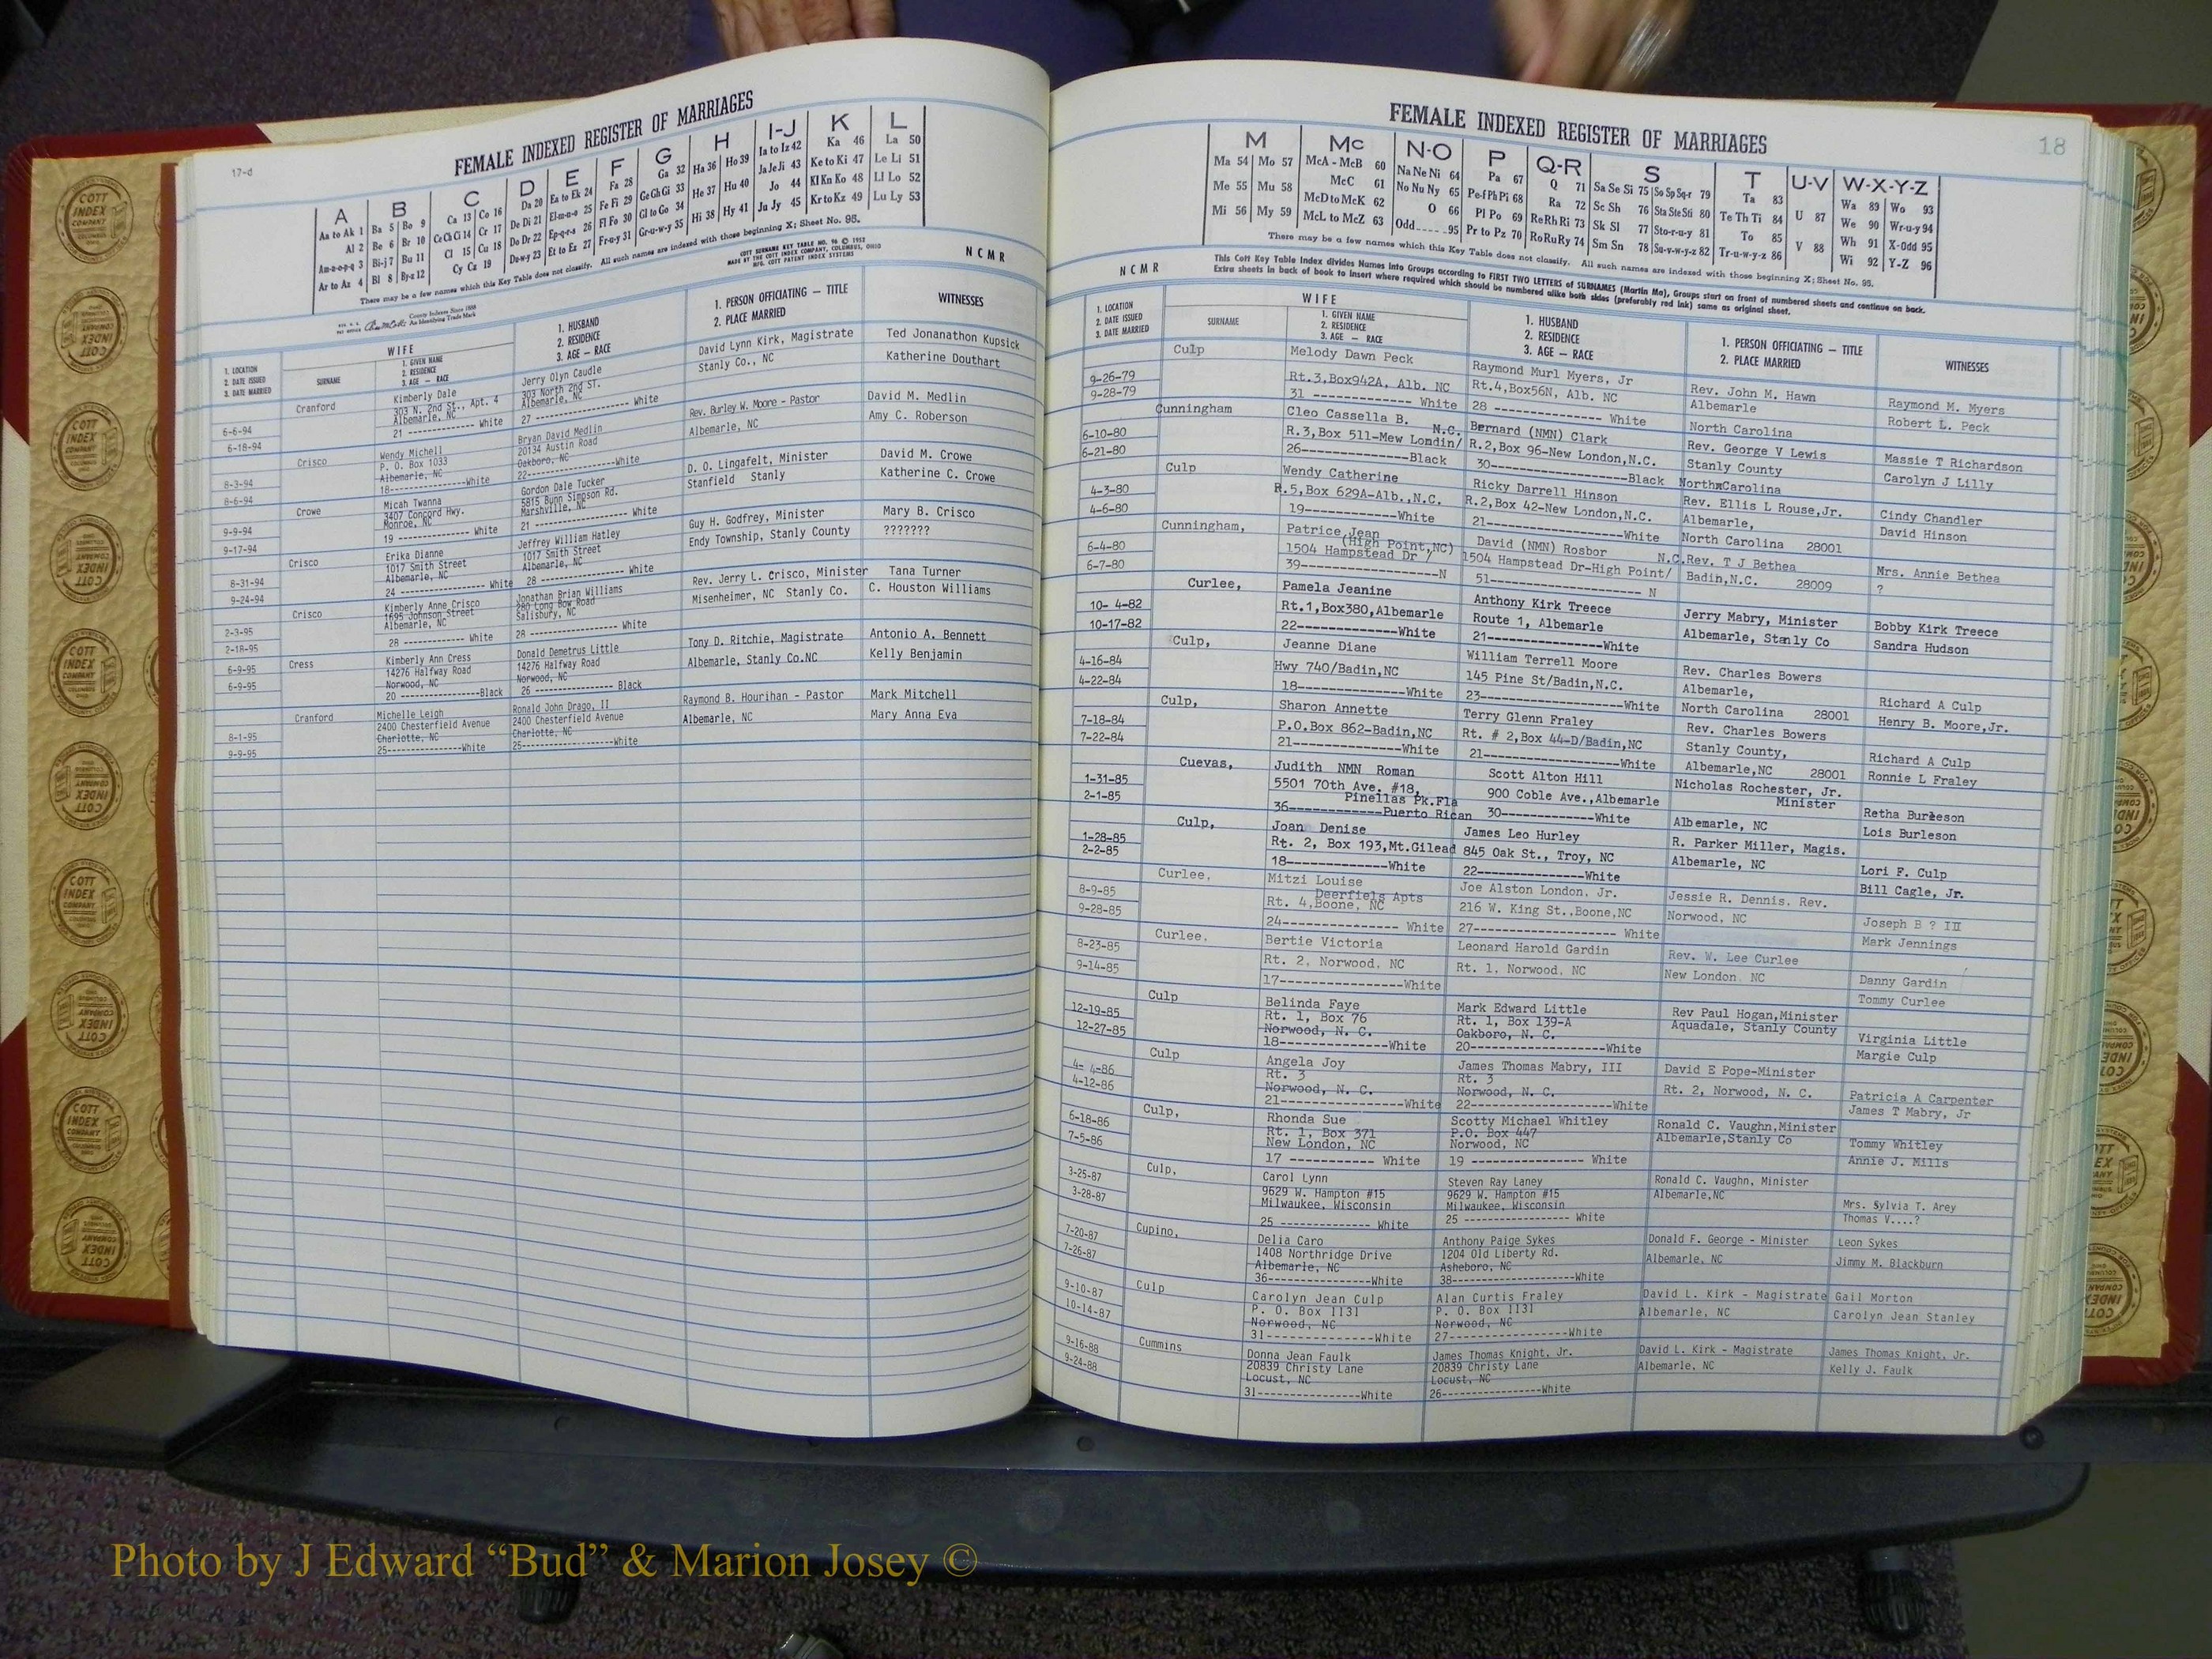 17-d
FEMALE INDEXED REGISTER OF MARRIAGES
A B C D E F G H I-J K L
Aa to Ak 1 Ba 5 Bo 9 Ca 13 Co 16 Da 20 Ea to Ek 24 Fa 28 Ga 32 Ha 36 Ho 39 Ia to Iz 42 Ka 46 La 50
Al 2 Be 6 Br 10 Ce Ch Ci 14 Cr 17 De Di 21 El-m-n-o 25 Fe Fi 29 Ge Gh Gi 33 He 37 Hu 40 Ja Je Ji 43 Ke to Ki 47 Le Li 51
Am-n-o-p-q 3 Bi-j 7 Bu 11 Cl 15 Cu 18 Do Dr 22 Ep-q-r-s 26 Fl Fo 30 Gl to Go 34 Hi 38 Hy 41 Jo 44 Kl Kn Ko 48 Ll Lo 52
Ar to Az 4 Bl 8 By-z 12 Cy Cz 19 Du-w-y 23 Et to Ez 27 Fr-u-y 31 Gr-u-w-y 35 Ju Jy 45 Kr to Kz 49 Lu Ly 53
There may be a few names which this Key Table does not classify. All such names are indexed with those beginning X; Sheet No. 95.
COTT SURNAME KEY TABLE NO. 96 © 1957
MADE BY THE COTT INDEX COMPANY, COLUMBUS, OHIO
MFG. COTT PATENT INDEX SYSTEMS
NCMR
County Indexes Since 1888
An Identifying Trade Mark
1. LOCATION
2. DATE ISSUED
3. DATE MARRIED
WIFE
SURNAME
1. GIVEN NAME
2. RESIDENCE
3. AGE — RACE
1. HUSBAND
2. RESIDENCE
3. AGE — RACE
1. PERSON OFFICIATING — TITLE
2. PLACE MARRIED
WITNESSES
Cranford Kimberly Dale Jerry Olyn Caudle David Lynn Kirk, Magistrate Ted Jonanathon Kupsick
303 N. 2nd St., Apt. 4 303 North 2nd ST. Stanly Co., NC Katherine Douthart
6-6-94 Albemarle, NC Albemarle, NC
6-18-94 21 ------------- White 27 ------------------ White
Crisco Wendy Michell Bryan David Medlin Rev. Burley W. Moore - Pastor David M. Medlin
P. O. Box 1033 20134 Austin Road Albemarle, NC Amy C. Roberson
8-3-94 Albemarle, NC Oakboro, NC
8-6-94 18---------------White 22------------------White
Crowe Micah Twanna Gordon Dale Tucker D. O. Lingafelt, Minister David M. Crowe
3407 Concord Hwy. 5815 Bunn Simpson Rd. Stanfield Stanly Katherine C. Crowe
9-9-94 Monroe, NC Marshville, NC
9-17-94 19 -------------- White 21 ------------------ White
Crisco Erika Dianne Jeffrey William Hatley Guy H. Godfrey, Minister Mary B. Crisco
1017 Smith Street 1017 Smith Street Endy Township, Stanly County ???????
8-31-94 Albemarle, NC Albemarle, NC
9-24-94 24 ---------------- White 28 ----------------- White
Crisco Kimberly Anne Crisco Jonathan Brian Williams Rev. Jerry L. Crisco, Minister Tana Turner
1695 Johnson Street 280 Long Bow Road Misenheimer, NC Stanly Co. C. Houston Williams
2-3-95 Albemarle, NC Salisbury, NC
2-18-95 28 ------------ White 28 ---------------- White
Cress Kimberly Ann Cress Donald Demetrus Little Tony D. Ritchie, Magistrate Antonio A. Bennett
6-9-95 14276 Halfway Road 14276 Halfway Road Albemarle, Stanly Co.NC Kelly Benjamin
6-9-95 Norwood, NC Norwood, NC
20 ----------------Black 26 ---------------- Black
Cranford Michelle Leigh Ronald John Drago, II Raymond B. Hourihan - Pastor Mark Mitchell
2400 Chesterfield Avenue 2400 Chesterfield Avenue Albemarle, NC Mary Anna Eva
8-1-95 Charlotte, NC Charlotte, NC
9-9-95 25--------------White 25-----------------White
FEMALE INDEXED REGISTER OF MARRIAGES
18
M Mc N-O P Q-R S T U-V W-X-Y-Z
Ma 54 Mo 57 McA - McB 60 Na Ne Ni 64 Pa 67 Q 71 Sa Se Si 75 So Sp Sq-r 79 Ta 83 U 87 Wa 89 Wo 93
Me 55 Mu 58 McC 61 No Nu Ny 65 Pe-f Ph Pi 68 Ra 72 Sc Sh 76 Sta Ste Sti 80 Te Th Ti 84 V 88 We 90 Wr-u-y 94
Mi 56 My 59 McD to McK 62 O 66 Pl Po 69 Re Rh Ri 73 Sk Sl 77 Sto-r-u-y 81 To 85 Wh 91 X-Odd 95
McL to McZ 63 Odd.....95 Pr to Pz 70 Ro Ru Ry 74 Sm Sn 78 Su-v-w-y-z 82 Tr-u-w-y-z 86 Wi 92 Y-Z 96
There may be a few names which this Key Table does not classify. All such names are indexed with those beginning X; Sheet No. 95.
This Cott Key Table Index divides Names into Groups according to FIRST TWO LETTERS of SURNAMES (Martin Ma), Groups start on front of numbered sheets and continue on back.
Extra sheets in back of book to insert where required which should be numbered alike both sides (preferably red ink) same as original sheet.
NCMR
1. LOCATION
2. DATE ISSUED
3. DATE MARRIED
WIFE
SURNAME
1. GIVEN NAME
2. RESIDENCE
3. AGE — RACE
1. HUSBAND
2. RESIDENCE
3. AGE — RACE
1. PERSON OFFICIATING — TITLE
2. PLACE MARRIED
WITNESSES
Culp Melody Dawn Peck Raymond Murl Myers, Jr Rev. John M. Hawn Raymond M. Myers
9-26-79 Rt.3,Box942A, Alb. NC Rt.4,Box56N, Alb. NC Albemarle Robert L. Peck
9-28-79 31 -------------- White 28 --------------- White North Carolina
Cunningham Cleo Cassella B. Bernard (NMN) Clark Rev. George V Lewis Massie T Richardson
6-10-80 R.3,Box 511-Mew Londin/ N.C. R.2,Box 96-New London,N.C. Stanly County Carolyn J Lilly
6-21-80 26--------------Black 30------------------Black NorthxCarolina
Culp Wendy Catherine Ricky Darrell Hinson Rev. Ellis L Rouse,Jr. Cindy Chandler
4-3-80 R.5,Box 629A-Alb.,N.C. R.2,Box 42-New London,N.C. Albemarle, David Hinson
4-6-80 19--------------White 21------------------White North Carolina 28001
Cunningham, Patrice Jean David (NMN) Rosbor Rev. T J Bethea Mrs. Annie Bethea
6-4-80 1504 Hampstead Dr / (High Point,NC) 1504 Hampstead Dr-High Point/ N.C. Badin,N.C. 28009 ?
6-7-80 39------------------N 51-------------------- N
Curlee, Pamela Jeanine Anthony Kirk Treece Jerry Mabry, Minister Bobby Kirk Treece
10- 4-82 Rt.1,Box380,Albemarle Route 1, Albemarle Albemarle, Stanly Co Sandra Hudson
10-17-82 22--------------White 21--------------White
Culp, Jeanne Diane William Terrell Moore Rev. Charles Bowers Richard A Culp
4-16-84 Hwy 740/Badin,NC 145 Pine St/Badin,N.C. Albemarle, Henry B. Moore,Jr.
4-22-84 18---------------White 23------------------White North Carolina 28001
Culp, Sharon Annette Terry Glenn Fraley Rev. Charles Bowers Richard A Culp
7-18-84 P.O.Box 862-Badin,NC Rt. # 2,Box 44-D/Badin,NC Stanly County, Ronnie L Fraley
7-22-84 21---------------White 21------------------White Albemarle,NC 28001
Cuevas, Judith NMN Roman Scott Alton Hill Nicholas Rochester, Jr. Retha Burleson
1-31-85 5501 70th Ave. #18, 900 Coble Ave.,Albemarle Minister Lois Burleson
2-1-85 Pinellas Pk.Fla Albemarle, NC
36------------Puerto Rican 30--------------White
Culp, Joan Denise James Leo Hurley R. Parker Miller, Magis. Lori F. Culp
1-28-85 Rt. 2, Box 193,Mt.Gilead 845 Oak St., Troy, NC Albemarle, NC Bill Cagle, Jr.
2-2-85 18--------------White 22----------------White
Curlee, Mitzi Louise Joe Alston London, Jr. Jessie R. Dennis, Rev. Joseph B ? III
8-9-85 Deerfiels Apts 216 W. King St.,Boone,NC Norwood, NC Mark Jennings
9-28-85 Rt. 4,Boone, NC
24---------------- White 27-------------------- White
Curlee, Bertie Victoria Leonard Harold Gardin Rev. W. Lee Curlee Danny Gardin
8-23-85 Rt. 2, Norwood, NC Rt. 1, Norwood, NC New London, NC Tommy Curlee
9-14-85 17-----------------White
Culp Belinda Faye Mark Edward Little Rev Paul Hogan,Minister Virginia Little
12-19-85 Rt. 1, Box 76 Rt. 1, Box 139-A Aquadale, Stanly County Margie Culp
12-27-85 Norwood, N. C. Oakboro, N. C.
18---------------White 20-------------------White
Culp Angela Joy James Thomas Mabry, III David E Pope-Minister Patricia A Carpenter
4- 4-86 Rt. 3 Rt. 3 Rt. 2, Norwood, N. C. James T Mabry, Jr
4-12-86 Norwood, N. C. Norwood, N. C.
21-----------------White 22--------------------White
Culp, Rhonda Sue Scotty Michael Whitley Ronald C. Vaughn,Minister Tommy Whitley
6-18-86 Rt. 1, Box 371 P.O. Box 447 Albemarle,Stanly Co Annie J. Mills
7-5-86 New London, NC Norwood, NC
17 ----------- White 19 --------------- White
Culp, Carol Lynn Steven Ray Laney Ronald C. Vaughn, Minister Mrs. Sylvia T. Arey
3-25-87 9629 W. Hampton #15 9629 W. Hampton #15 Albemarle,NC Thomas V....?
3-28-87 Milwaukee, Wisconsin Milwaukee, Wisconsin
25 -------------- White 25 ----------------- White
Cupino, Delia Caro Anthony Paige Sykes Donald F. George - Minister Leon Sykes
7-20-87 1408 Northridge Drive 1204 Old Liberty Rd. Albemarle, NC Jimmy M. Blackburn
7-26-87 Albemarle, NC Asheboro, NC
36-----------------White 38------------------White
Culp Carolyn Jean Culp Alan Curtis Fraley David L. Kirk - Magistrate Gail Morton
9-10-87 P. O. Box 1131 P. O. Box 1131 Albemarle, NC Carolyn Jean Stanley
10-14-87 Norwood, NC Norwood, NC
31------------------White 27------------------White
Cummins Donna Jean Faulk James Thomas Knight, Jr. David L. Kirk - Magistrate James Thomas Knight, Jr.
9-16-88 20839 Christy Lane 20839 Christy Lane Albemarle, NC Kelly J. Faulk
9-24-88 Locust, NC Locust, NC
31------------------White 26------------------White
COTT INDEX COMPANY COLUMBUS OHIO
Photo by J Edward “Bud” & Marion Josey ©